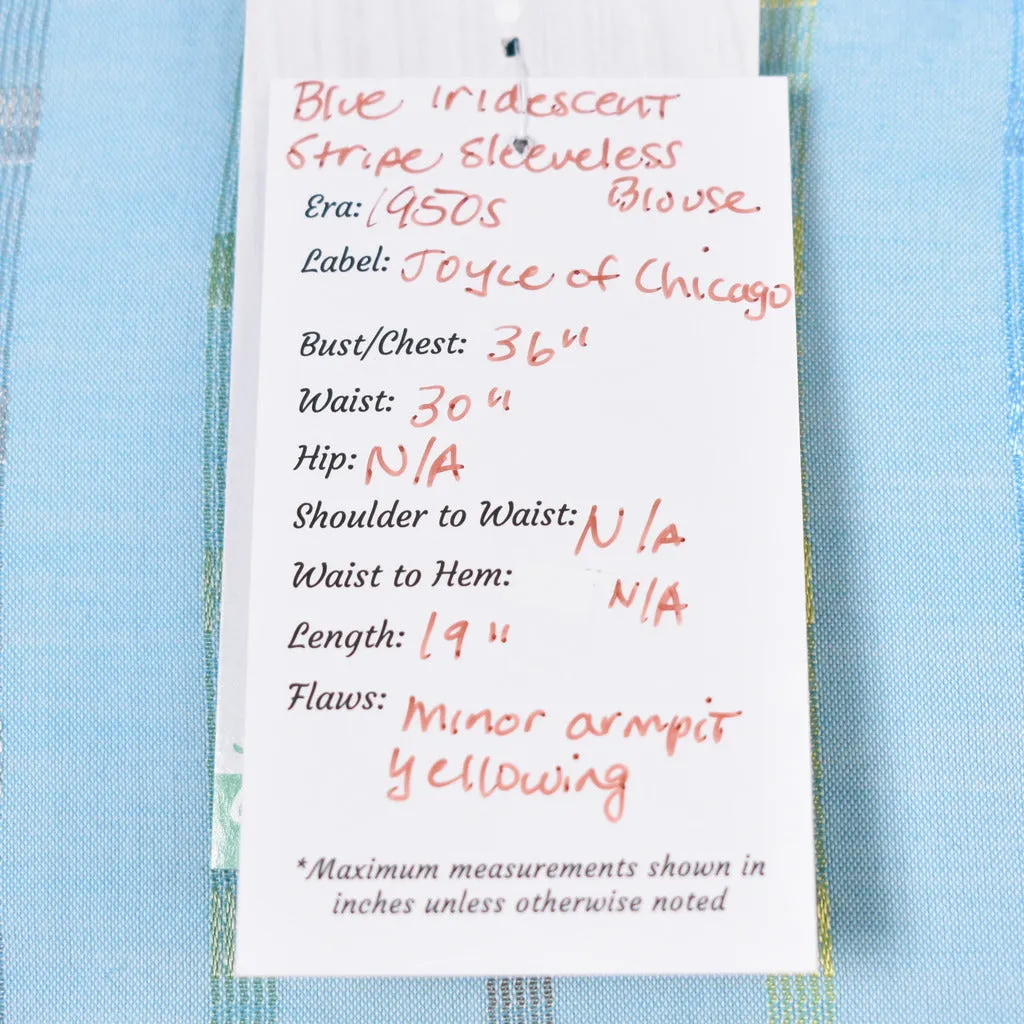 Blue iridescent
Stripe Sleeveless
Blouse
Era: 1950s
Label: Joyce of Chicago
Bust/Chest: 36"
Waist: 30"
Hip: N/A
Shoulder to Waist: N/A
Waist to Hem: N/A
Length: 19"
Flaws: Minor armpit
yellowing
*Maximum measurements shown in
inches unless otherwise noted